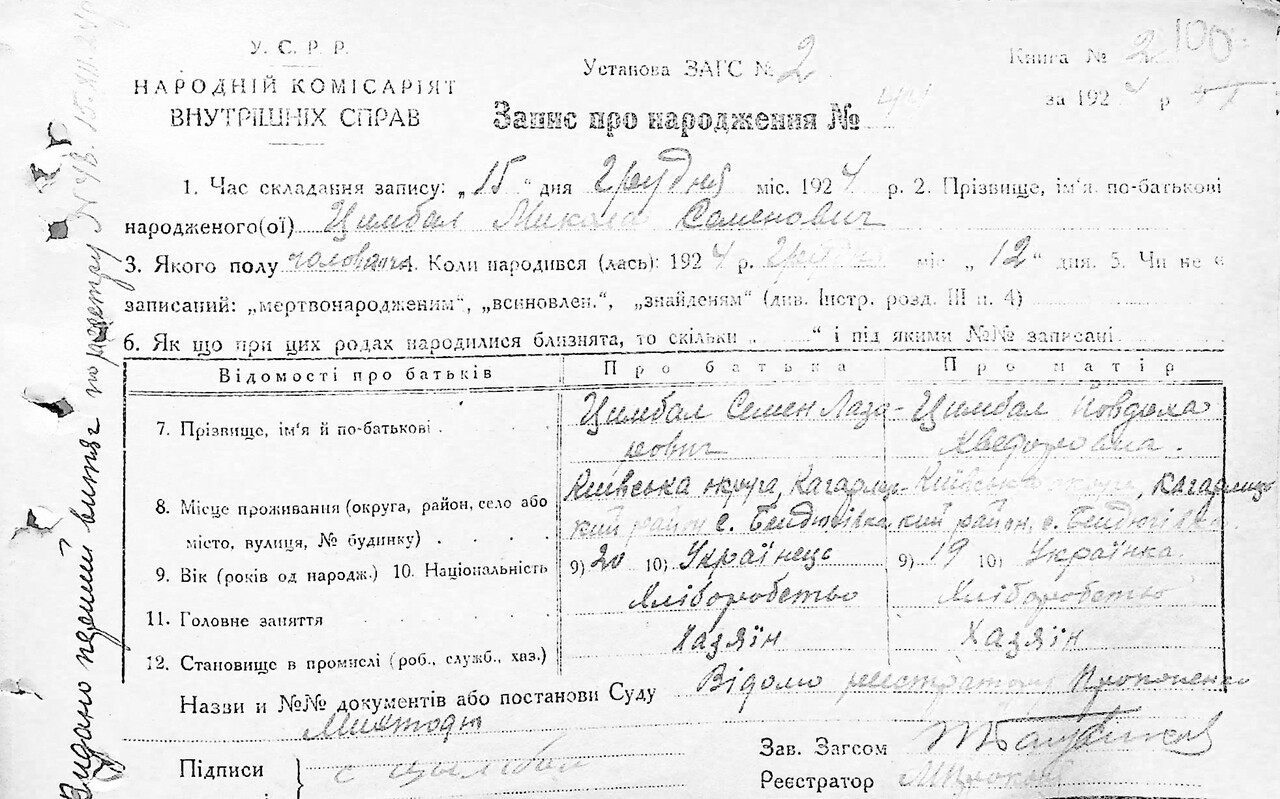 У. С. Р. Р.
НАРОДНІЙ КОМІСАРІЯТ
ВНУТРІШНІХ СПРАВ
Установа ЗАГС № 2
Книга № 2 100
за 1924 р.
Запис про народження №
1. Час складання запису: „15“ дня Грудня міс. 1924 р. 2. Прізвище, ім'я по-батькові
народженого(ої) Цимбал Микола Семенович
3. Якого полу чоловіч. 4. Коли народився (лась): 1924 р. Грудня міс „12“ дня. 5. Чи не є
записаний: „мертвонародженим“, „всиновлен.“, „знайденям“ (див. Інстр. розд. III п. 4)
6. Як що при цих родах народилися близнята, то скільки „ “ і під якими №№ записані
Відомості про батьків Про батька Про матір
7. Прізвище, ім'я й по-батькові . Цимбал Семен Лазарович Цимбал Йовдоха Хведоровна.
8. Місце проживання (округа, район, село або
місто, вулиця, № будинку) . . Київська округа, Кагарлицький район с. Бендюгівка Київська округа, Кагарлицький район, с. Бендюгівка.
9. Вік (років од народж.) 10. Національність 9) 20 10) Українець 9) 19 10) Українка.
11. Головне заняття Хліборобство Хліборобство
12. Становище в промислі (роб., служб., хаз.) Хазяїн Хазяїн
Назви и №№ документів або постанови Суду Відомо реєстратору Прокопенко
Підписи С Цымбал
Зав. Загсом
Реєстратор
Видано перший витяг по реєстру №